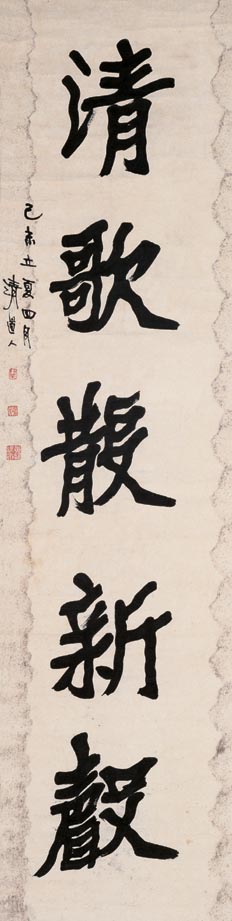 清歌散新聲
己亥立夏四月
清道人